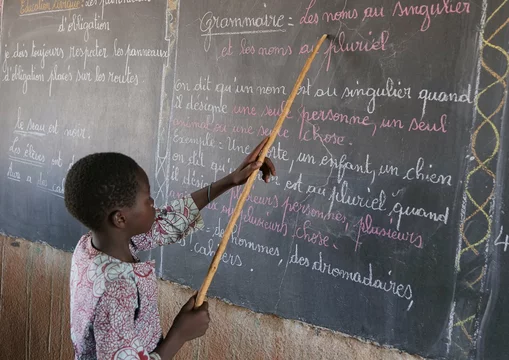 Education Civique : Les panneaux
d'obligation
je dois toujours respecter les panneaux
d'obligation placés sur les routes.
Le seau est noir.
Les élèves ont
Grammaire : Les noms au singulier
et les noms au pluriel
On dit qu'un nom est au singulier quand
il désigne une seule personne, un seul
animal ou une seule chose.
Exemple : Une , un enfant, un chien
on dit qu' est au pluriel, quand
il désigne plusieurs personnes, plusieurs
plusieurs chose.
des hommes, des dromadaires,
cahiers.
4